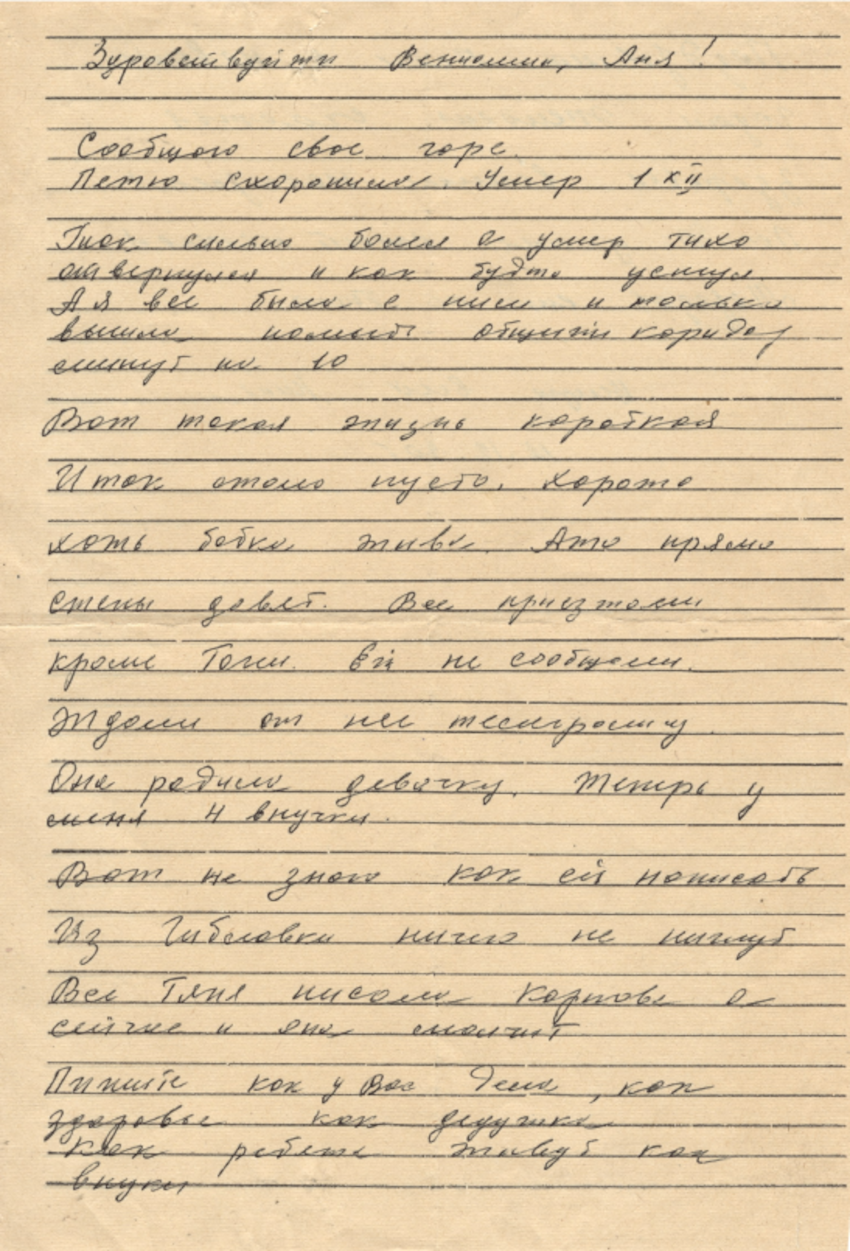 Здравствуйти Вениамин, Аня!
Сообщаю свое горе.
Петю схоронила. Умер 1 XII
Так сильно болел а умер тихо
отвернулся и как будто уснул.
А я все была с ним и только
вышла помыть общий коридор
минут на 10
Вот такая жизнь короткая
И так стало пусто. Хорошо
хоть бабка жива. Ато прямо
стены давят. Все приезжали
кроме Тони. Ей не сообщали.
Ждали от нее телеграмму.
Она родила девочку. Теперь у
меня 4 внучки.
Вот не знаю как ей написать
Из ничего не пишут
Все Таня писала Карпова а
сейчас и она молчит
Пишите как у Вас дела, как
здоровье как дедушка
Как ребята живут как
внуки